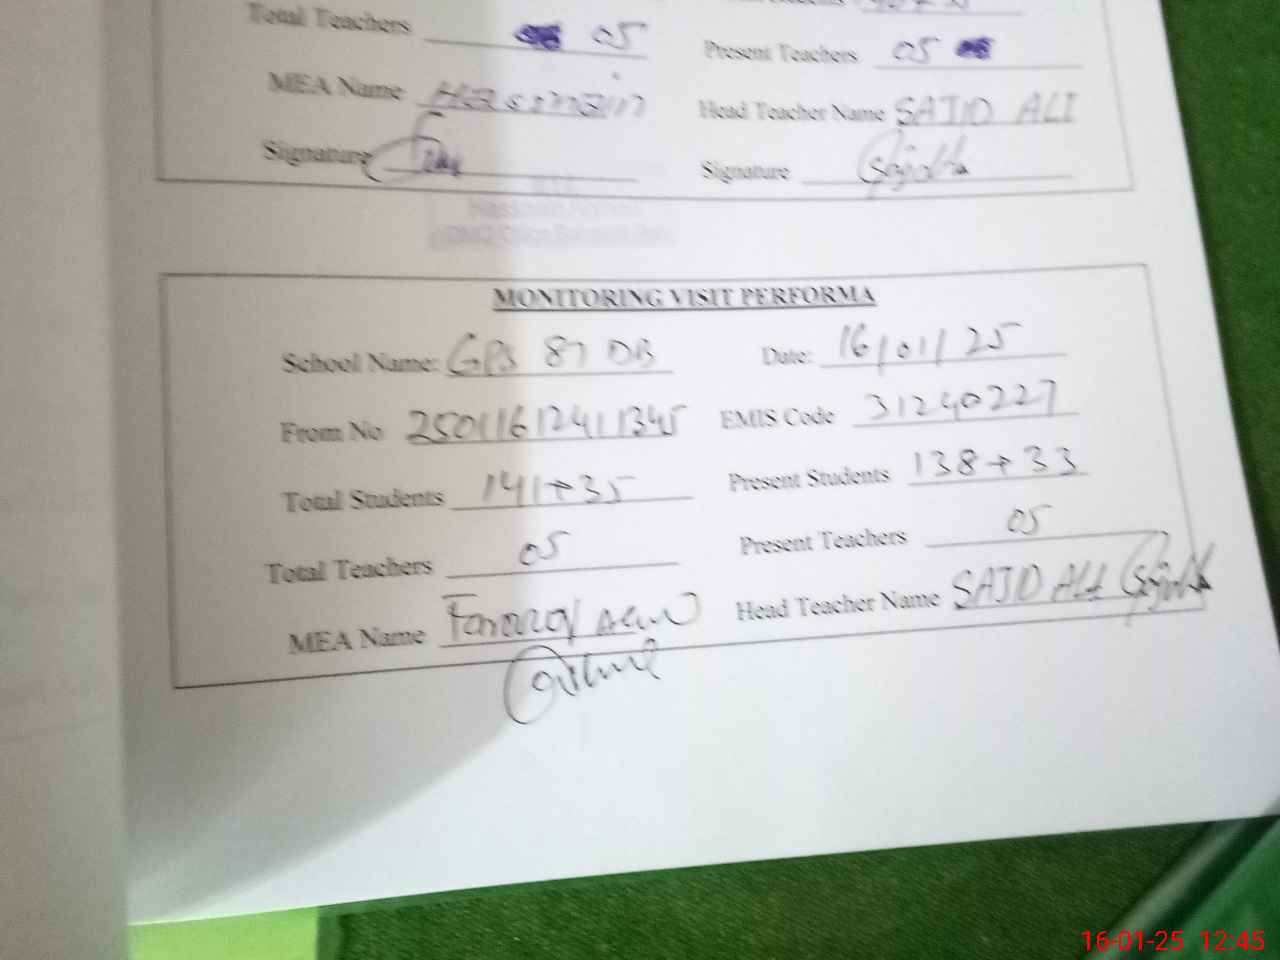 Total Teachers 05 Present Teachers 05
MEA Name Head Teacher Name SAJID ALI
Signature Signature
MONITORING VISIT PERFORMA
School Name: GPS 87 DB Date: 16/01/25
From No 25011612411345 EMIS Code 31240227
Total Students 141+35 Present Students 138+33
Total Teachers 05 Present Teachers 05
MEA Name Farooq Head Teacher Name SAJID ALI
16-01-25 12:45